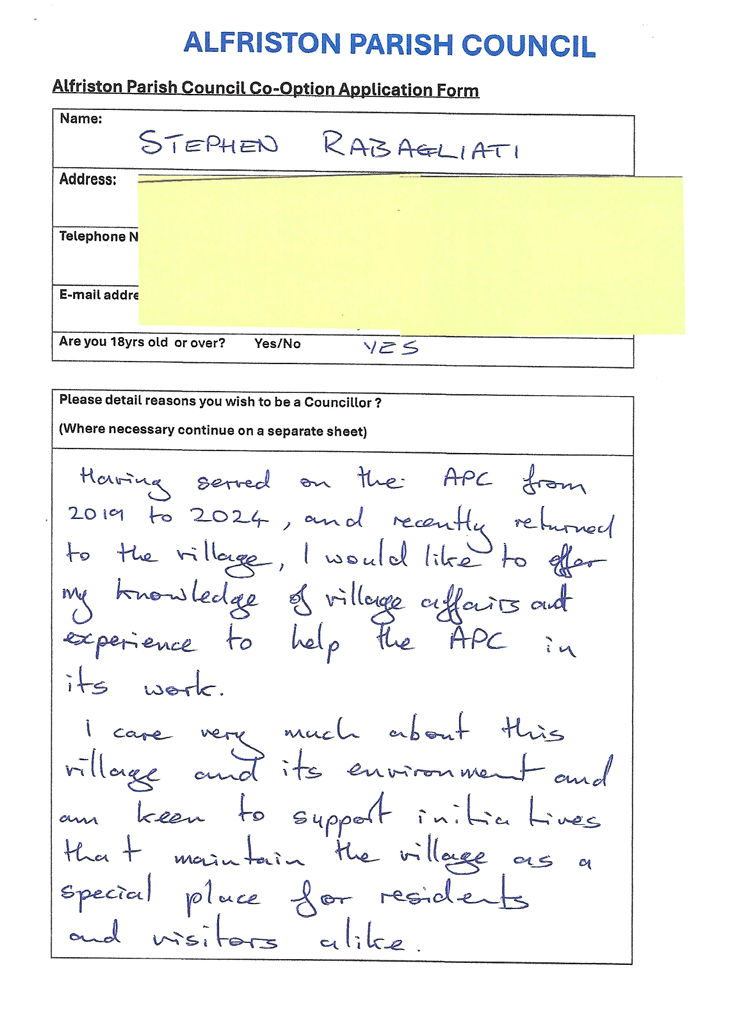 ALFRISTON PARISH COUNCIL
Alfriston Parish Council Co-Option Application Form
Name:
STEPHEN RABAGLIATI
Address:
Telephone N
E-mail addre
Are you 18yrs old or over? Yes/No YES
Please detail reasons you wish to be a Councillor ?
(Where necessary continue on a separate sheet)
Having served on the APC from
2019 to 2024, and recently returned
to the village, I would like to offer
my knowledge of village affairs and
experience to help the APC in
its work.
I care very much about this
village and its environment and
am keen to support initiatives
that maintain the village as a
special place for residents
and visitors alike.